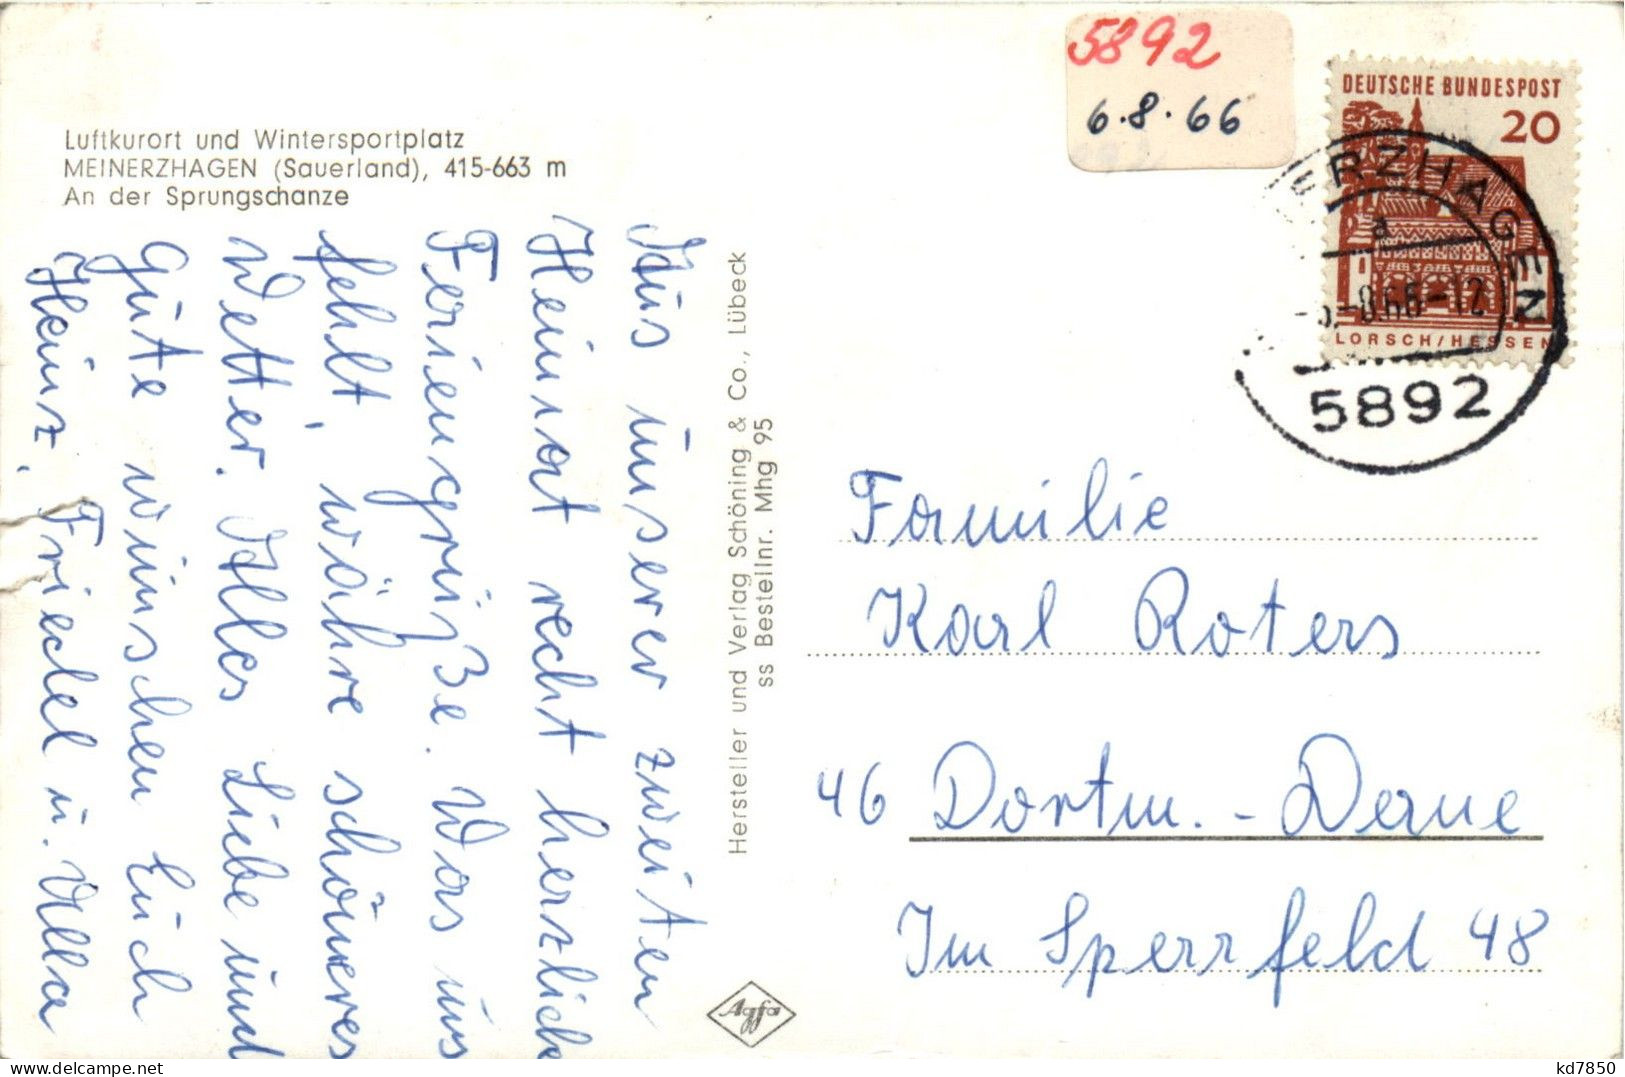 Luftkurort und Wintersportplatz
MEINERZHAGEN (Sauerland), 415-663 m
An der Sprungschanze
5892
6.8.66
DEUTSCHE BUNDESPOST
20
LORSCH/HESSEN
RZHAGEN
a
-8.66-12
5892
Aus unserer zweiten
Heimat recht herzliche
Feriengrüße. Was uns
fehlt, währe schöneres
Wetter. Alles Liebe und
Gute wünschen Euch
Heinz, Friedel u. Ulla
Hersteller und Verlag Schöning & Co., Lübeck
ss Bestellnr. Mhg 95
Agfa
Familie
Karl Roters
46 Dortm.-Derne
Im Sperrfeld 48
kd7850